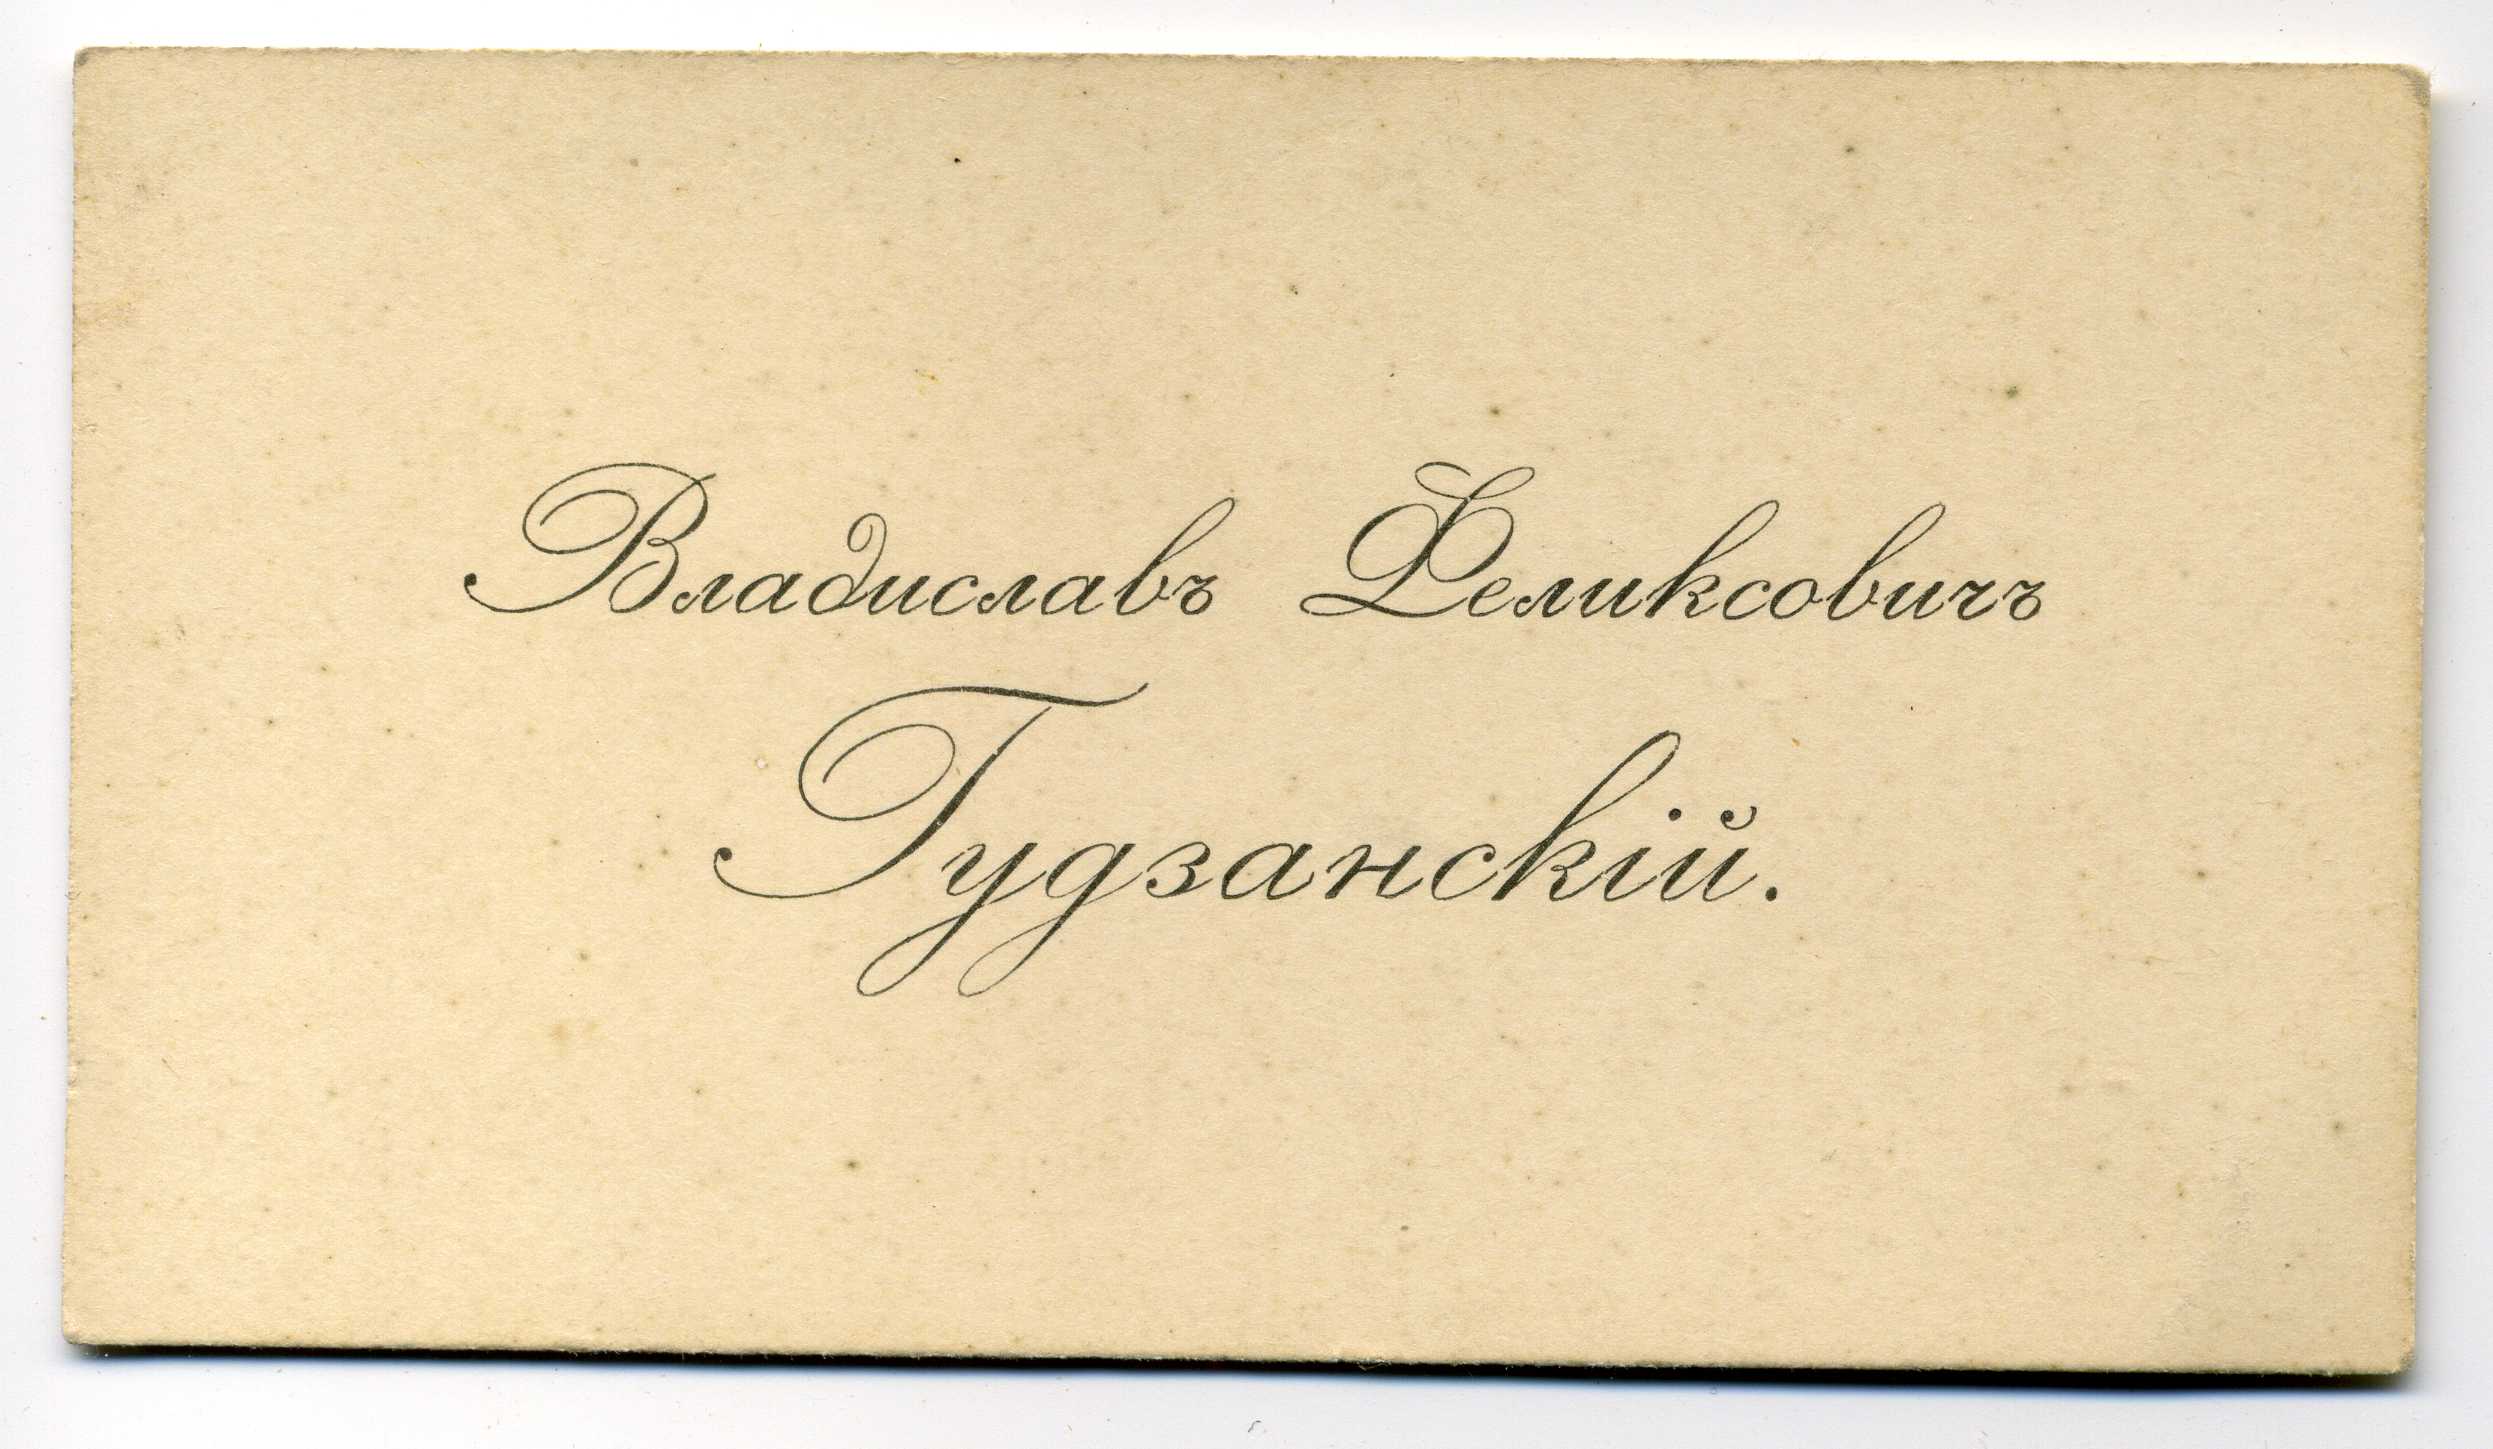 Владиславъ Феликсовичъ
Гудзанскій.